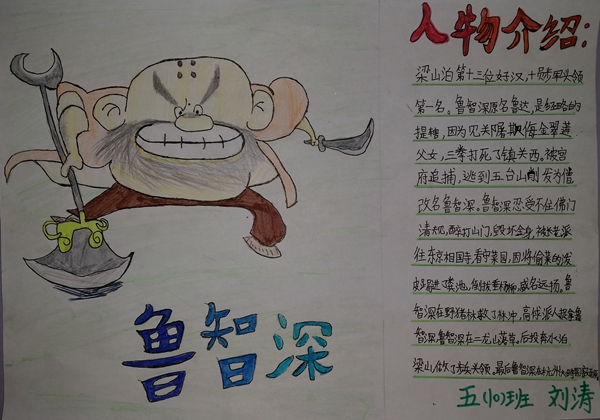 鲁智深
人物介绍:
梁山泊第十三位好汉,十步军头领
第一名。鲁智深原名鲁达,是经略的
提辖,因为见郑屠欺侮金翠莲
父女,三拳打死了镇关西。被官
府追捕,逃到五台山削发为僧
改名鲁智深。鲁智深忍受不住佛门
清规,醉打山门,毁坏金身,被长老派
往东京相国寺,看守菜园,因将偷菜的泼
踢进了粪池,倒拔垂杨柳,威名远扬。鲁
智深在野猪林救了林冲,高俅派人捉拿鲁
智深鲁智深在二龙山落草。后投奔水泊
梁山,做了步军头领。最后鲁智深在杭州
五(10)班 刘涛